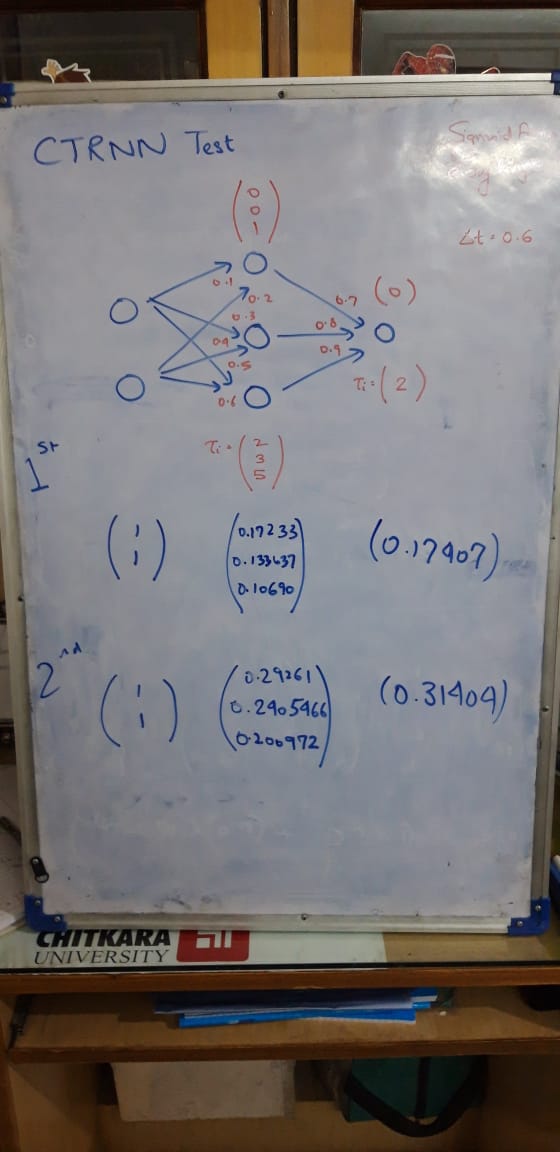 CTRNN Test
Sigmoid
0
0
1
Δt = 0.6
0.1
0.2
0.3
0.4
0.5
0.6
0.7
(0)
0.8
0.9
τi = (2)
τi =
2
3
5
1st
1
1
0.17233
0.133637
0.10690
(0.17407)
2nd
1
1
0.29261
0.2405466
0.200972
(0.31404)
CHITKARA
UNIVERSITY